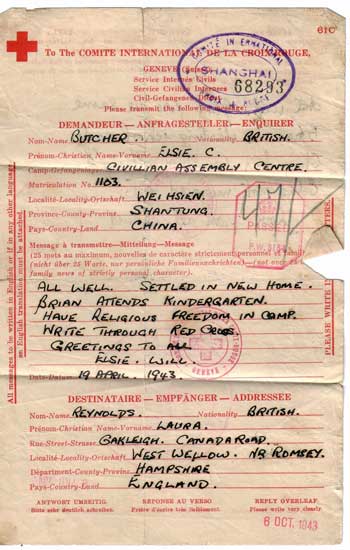 61C
To The COMITÉ INTERNATIONAL DE LA CROIX ROUGE,
GENEVE (Suisse)
Service Internés Civils
Service Civilian Internees
Civil-Gefangenen Dienst
Please transmit the following message:
COMITÉ INTERNATIONAL
SHANGHAI
68293
DEMANDEUR—ANFRAGESTELLER—ENQUIRER
Nom-Name BUTCHER Nationality BRITISH.
Prénom-Christian Name-Vorname ELSIE. C.
Camp-Gefangenenlager CIVILLIAN ASSEMBLY CENTRE.
Matriculation No. 1103.
Localité-Locality-Ortschaft WEIHSIEN.
Province-County-Provinz SHANTUNG.
Pays-Country-Land CHINA.
PASSED
Message à transmettre—Mitteilung—Message
(25 mots au maximum, nouvelles de caractère strictement personnel et familial)
(nicht über 25 Worte, nur persönliche Familiennachrichten)—(not over 25
family news of strictly personal character).
ALL WELL. SETTLED IN NEW HOME.
BRIAN ATTENDS KINDERGARTEN.
HAVE RELIGIOUS FREEDOM IN CAMP.
WRITE THROUGH RED CROSS.
GREETINGS TO ALL
ELSIE. WILL.
GENEVE
Date-Datum 19 APRIL. 1943.
All messages to be written in English or if in any other language,
an English translation must be attached.
PLEASE WRITE IN
LETTERS.
DESTINATAIRE - EMPFÄNGER - ADDRESSEE
Nom-Name REYNOLDS. Nationality BRITISH.
Prénom-Christian Name-Vorname LAURA.
Rue-Street-Strasse OAKLEIGH. CANADA ROAD.
Localité-Locality-Ortschaft WEST WELLOW. NR ROMSEY.
Départment-County-Provinz HAMPSHIRE
Pays-Country-Land ENGLAND.
ANTWORT UMSEITIG. RÉPONSE AU VERSO REPLY OVERLEAF
Bitte sehr deutlich schreiben. Prière d'écrire très lisiblement. Please write very clearly
6 OCT. 1943